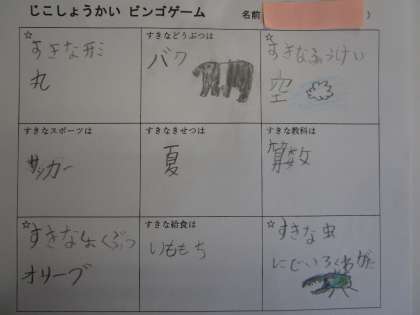 じこしょうかい ビンゴゲーム 名前( )
☆
すきな形
丸
すきなどうぶつは
バク
☆
すきなふうけい
空
すきなスポーツは
サッカー
すきなきせつは
夏
すきな教科は
算数
☆
すきなしょくぶつ
オリーブ
すきな給食は
いももち
☆
すきな虫
にじいろくわがた